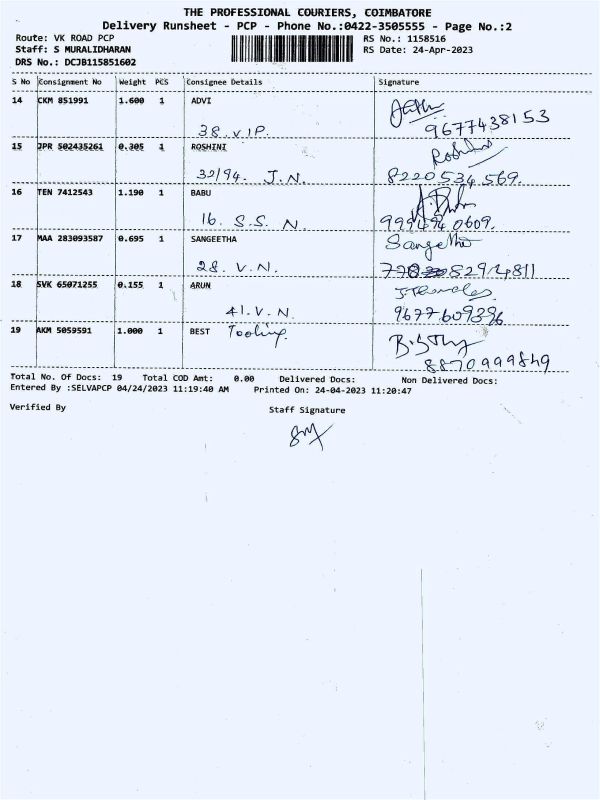 THE PROFESSIONAL COURIERS, COIMBATORE
Delivery Runsheet - PCP - Phone No.:0422-3505555 - Page No.:2
Route: VK ROAD PCP RS No.: 1158516
Staff: S MURALIDHARAN RS Date: 24-Apr-2023
DRS No.: DCJB115851602
S No Consignment No Weight PCS Consignee Details Signature
14 CKM 851991 1.600 1 ADVI
38. V.I.P. 9677438153
15 JPR 502435261 0.305 1 ROSHINI Roshini
32/94. J.N. 8220534569.
16 TEN 7412543 1.190 1 BABU
16. S.S. N.
17 MAA 283093587 0.695 1 SANGEETHA Sangeetha
28. V.N.
18 SVK 65071255 0.155 1 ARUN
41. V.N. 9677609396
19 AKM 5059591 1.000 1 BEST Tooling.
8870999849
Total No. Of Docs: 19 Total COD Amt: 0.00 Delivered Docs: Non Delivered Docs:
Entered By :SELVAPCP 04/24/2023 11:19:40 AM Printed On: 24-04-2023 11:20:47
Verified By Staff Signature